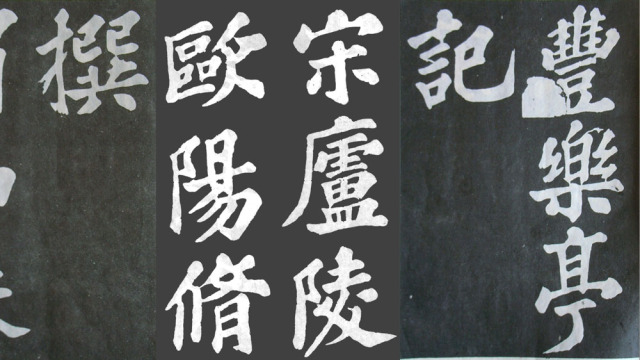 豐樂亭
記
宋廬陵
歐陽脩
撰